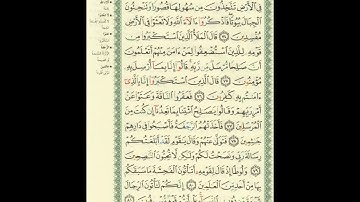 فِي ٱلۡأَرۡضِ تَتَّخِذُونَ مِن سُهُولِهَا قُصُورٗا وَتَنۡحِتُونَ
ٱلۡجِبَالَ بُيُوتٗاۖ فَٱذۡكُرُوٓاْ ءَالَآءَ ٱللَّهِ وَلَا تَعۡثَوۡاْ فِي ٱلۡأَرۡضِ
مُفۡسِدِينَ ٧٤ قَالَ ٱلۡمَلَأُ ٱلَّذِينَ ٱسۡتَكۡبَرُواْ مِن
قَوۡمِهِۦ لِلَّذِينَ ٱسۡتُضۡعِفُواْ لِمَنۡ ءَامَنَ مِنۡهُمۡ أَتَعۡلَمُونَ
أَنَّ صَٰلِحٗا مُّرۡسَلٞ مِّن رَّبِّهِۦۚ قَالُوٓاْ إِنَّا بِمَآ أُرۡسِلَ بِهِۦ
مُؤۡمِنُونَ ٧٥ قَالَ ٱلَّذِينَ ٱسۡتَكۡبَرُوٓاْ إِنَّا بِٱلَّذِيٓ
ءَامَنتُم بِهِۦ كَٰفِرُونَ ٧٦ فَعَقَرُواْ ٱلنَّاقَةَ وَعَتَوۡاْ عَنۡ
أَمۡرِ رَبِّهِمۡ وَقَالُواْ يَٰصَٰلِحُ ٱئۡتِنَا بِمَا تَعِدُنَآ إِن كُنتَ مِنَ
ٱلۡمُرۡسَلِينَ ٧٧ فَأَخَذَتۡهُمُ ٱلرَّجۡفَةُ فَأَصۡبَحُواْ فِي دَارِهِمۡ
جَٰثِمِينَ ٧٨ فَتَوَلَّىٰ عَنۡهُمۡ وَقَالَ يَٰقَوۡمِ لَقَدۡ أَبۡلَغۡتُكُمۡ
رِسَالَةَ رَبِّي وَنَصَحۡتُ لَكُمۡ وَلَٰكِن لَّا تُحِبُّونَ ٱلنَّٰصِحِينَ
٧٩ وَلُوطًا إِذۡ قَالَ لِقَوۡمِهِۦٓ أَتَأۡتُونَ ٱلۡفَٰحِشَةَ مَا سَبَقَكُم
بِهَا مِنۡ أَحَدٖ مِّنَ ٱلۡعَٰلَمِينَ ٨٠ إِنَّكُمۡ لَتَأۡتُونَ ٱلرِّجَالَ